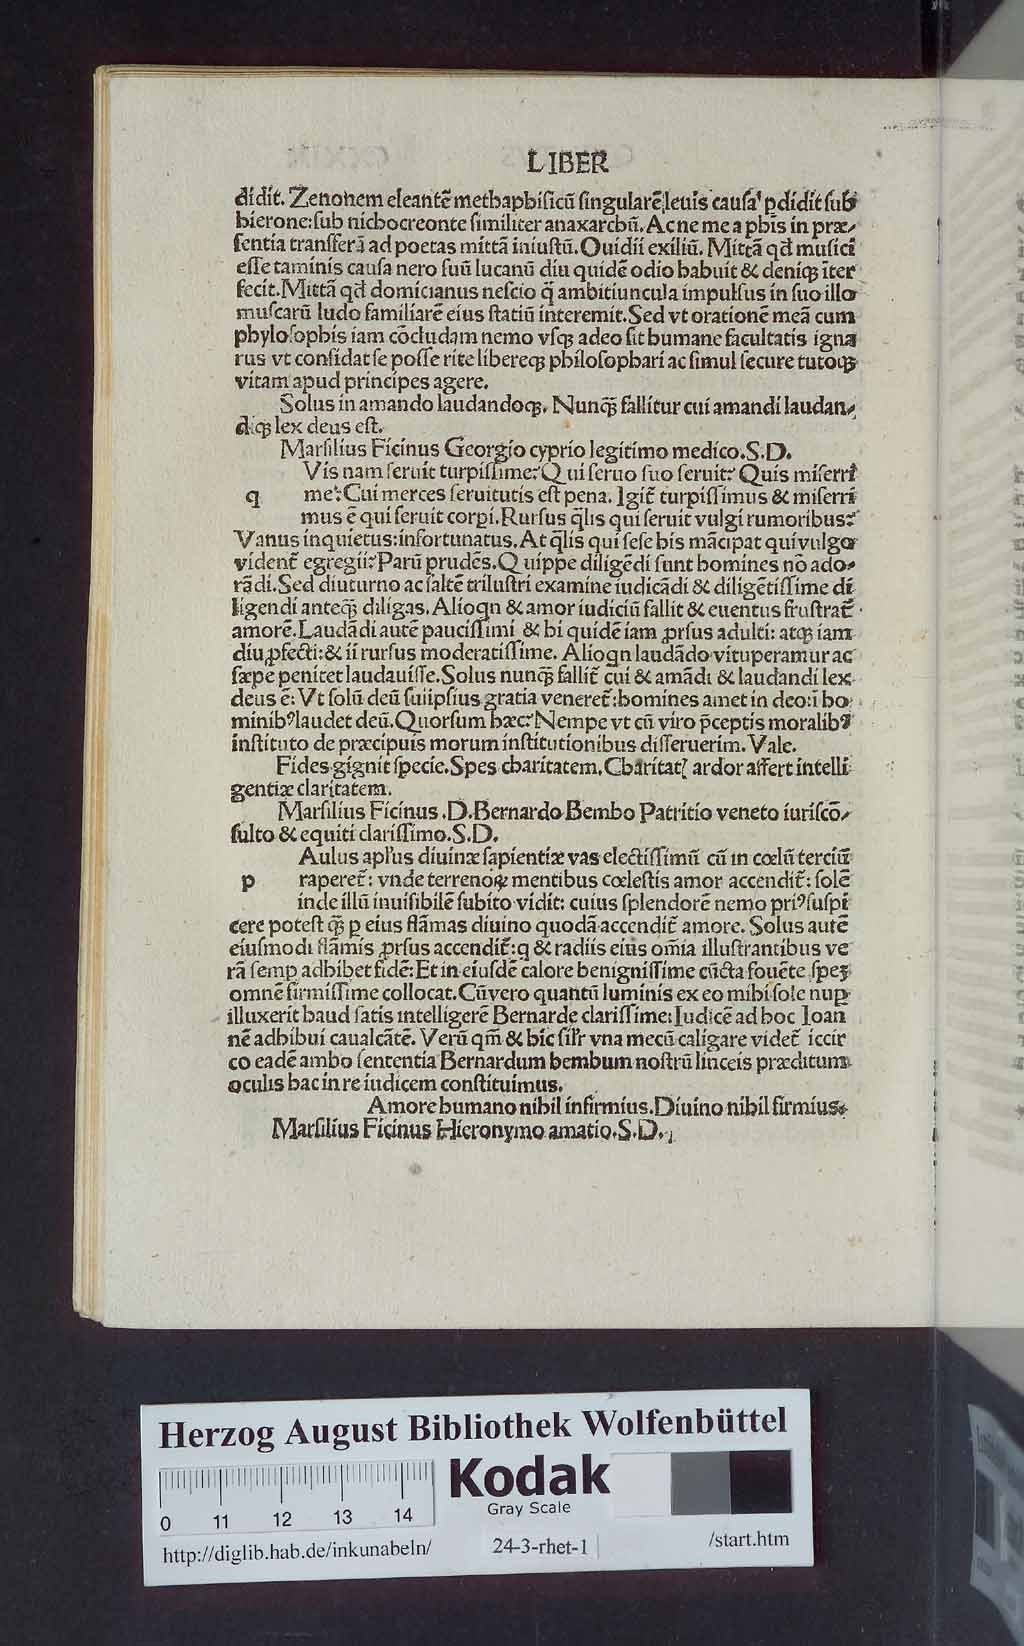 LIBER
didit. Zenonem eleantē methaphisicū singularē leuis causa pdidit sub
hierone: sub nichocreonte similiter anaxarchū. Ac ne me a phīs in præ-
sentia transferā ad poetas mittā iniustū. Ouidii exiliū. Mittā qđ musici
esse taminis causa nero suū lucanū diu quidē odio habuit & deniqꝫ īter
fecit. Mittā qđ domicianus nescio q̄ ambitiuncula impulsus in suo illo
muscarū ludo familiarē eius statiū interemit. Sed vt orationē meā cum
phylosophis iam cōcludam nemo vsqꝫ adeo sit humane facultatis igna
rus vt confidat se posse rite libereqꝫ philosophari ac simul secure tutoqꝫ
vitam apud principes agere.
Solus in amando laudandoqꝫ. Nunq̄ꝫ fallitur cui amandi laudan-
diqꝫ lex deus est.
Marsilius Ficinus Georgio cyprio legitimo medico. S. D.
Vis nam seruit turpissime? Qui seruo suo seruit? Quis miserri
q me? Cui merces seruitutis est pena. Igit̄ turpissimus & miserri
mus ē qui seruit corpi. Rursus q̄lis qui seruit vulgi rumoribus?
Vanus inquietus: infortunatus. At q̄lis qui sese his mācipat qui vulgo
vident̄ egregii? Parū prudēs. Quippe diligēdi sunt homines nō ado-
rādi. Sed diuturno ac saltē trilustri examine iudicādi & diligētissime di
ligendi anteq̄ꝫ diligas. Alioqn & amor iudiciū fallit & euentus frustrat̄
amorē. Laudādi autē paucissimi & hi quidē iam ꝓrsus adulti: atqꝫ iam
diu ꝓfecti: & ii rursus moderatissime. Alioqn laudādo vituperamur ac
sæpe penitet laudauisse. Solus nunq̄ꝫ fallit̄ cui & amādi & laudandi lex
deus ē: Vt solū deū suiipsius gratia veneret̄: homines amet in deo: ī ho
minibꝰ laudet deū. Quorsum hæc? Nempe vt cū viro p̄ceptis moralibꝰ
instituto de præcipuis morum institutionibus disseruerim. Vale.
Fides gignit specie. Spes charitatem. Charitatꝭ ardor affert intelli
gentiæ claritatem.
Marsilius Ficinus . D. Bernardo Bembo Patritio veneto iuriscō-
sulto & equiti clarissimo. S. D.
Aulus apl'us diuinæ sapientiæ vas electissimū cū in cœlū terciū
p raperet̄: vnde terrenoꝝ mentibus cœlestis amor accendit̄: solē
inde illū inuisibilē subito vidit: cuius splendorē nemo priꝰ suspi
cere potest q̄ꝫ ꝑ eius flāmas diuino quodā accendit̄ amore. Solus autē
eiusmodi flāmis ꝓrsus accendit̄: q & radiis eius om̄ia illustrantibus ve
rā semp adhibet fidē: Et in eiusdē calore benignissime cūcta fouēte speꝫ
omnē firmissime collocat. Cū vero quantū luminis ex eo mihi sole nuꝑ
illuxerit haud satis intelligerē Bernarde clarissime: Iudicē ad hoc Ioan
nē adhibui caualcātē. Verū qm̄ & hic sil'r vna mecū caligare videt̄ iccir
co eadē ambo sententia Bernardum bembum nostrū linceis præditum
oculis hac in re iudicem constituimus.
Amore humano nihil infirmius. Diuino nihil firmius.
Marsilius Ficinus Hieronymo amatio. S. D.
Herzog August Bibliothek Wolfenbüttel
Kodak
Gray Scale
0 11 12 13 14
http://diglib.hab.de/inkunabeln/ 24-3-rhet-1 /start.htm